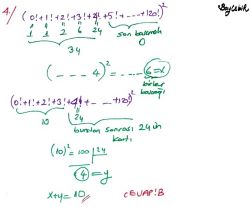 BayLWH
4/ (0!+1!+2!+3!+4!+5!+ ---- +120!)²
1 1 2 6 24 son basamak
0
34
( - - - 4)² = ---- 6 = x
birler
basamağı
(0!+1!+2!+3!+4!+ -- --- +120!)²
10 24
bundan sonrası 24 ün
katı
(10)² = 100 | 24
4 = y
x+y = 10
CEVAP: B